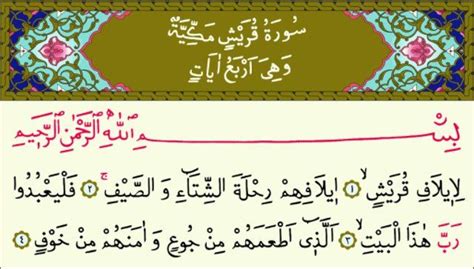 سُورَةُ قُرَيْشٍ مَكِّيَّةٌ
وَهِيَ اَرْبَعُ اٰيَاتٍ
بِسْمِ اللّٰهِ الرَّحْمٰنِ الرَّحٖيمِ
لِاٖيلَافِ قُرَيْشٍۙ ﴿١﴾ اٖيلَافِهِمْ رِحْلَةَ الشِّتَٓاءِ وَ الصَّيْفِۚ ﴿٢﴾ فَلْيَعْبُدُوا
رَبَّ هٰذَا الْبَيْتِۙ ﴿٣﴾ اَلَّذٖٓى اَطْعَمَهُمْ مِنْ جُوعٍ وَ اٰمَنَهُمْ مِنْ خَوْفٍ ﴿٤﴾